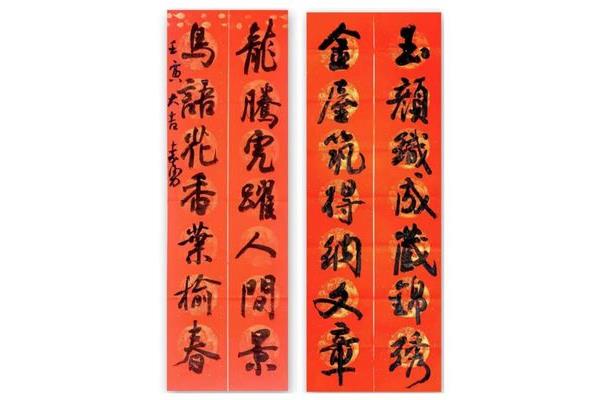 玉顔織成藏錦綉
金屋筑得納文章
龍騰虎躍人間景
鳥語花香葉榆春
壬寅大吉